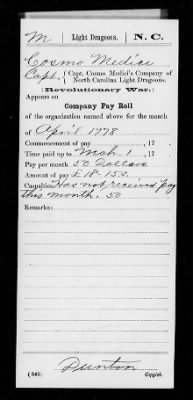 M | Light Dragoons. | N. C.
Cosmo Medici
Capt., { Capt. Cosmo Medici's Company of North Carolina Light Dragoons.
(Revolutionary War.)
Appears on
Company Pay Roll
of the organization named above for the month
of April 1778
Commencement of pay , 17 .
Time paid up to Mch. 1 , 17 .
Pay per month 50 Dollars
Amount of pay £18-15s.
Casualties Has not received pay
this month. 50
Remarks:
Dunton
(545) Copyist.